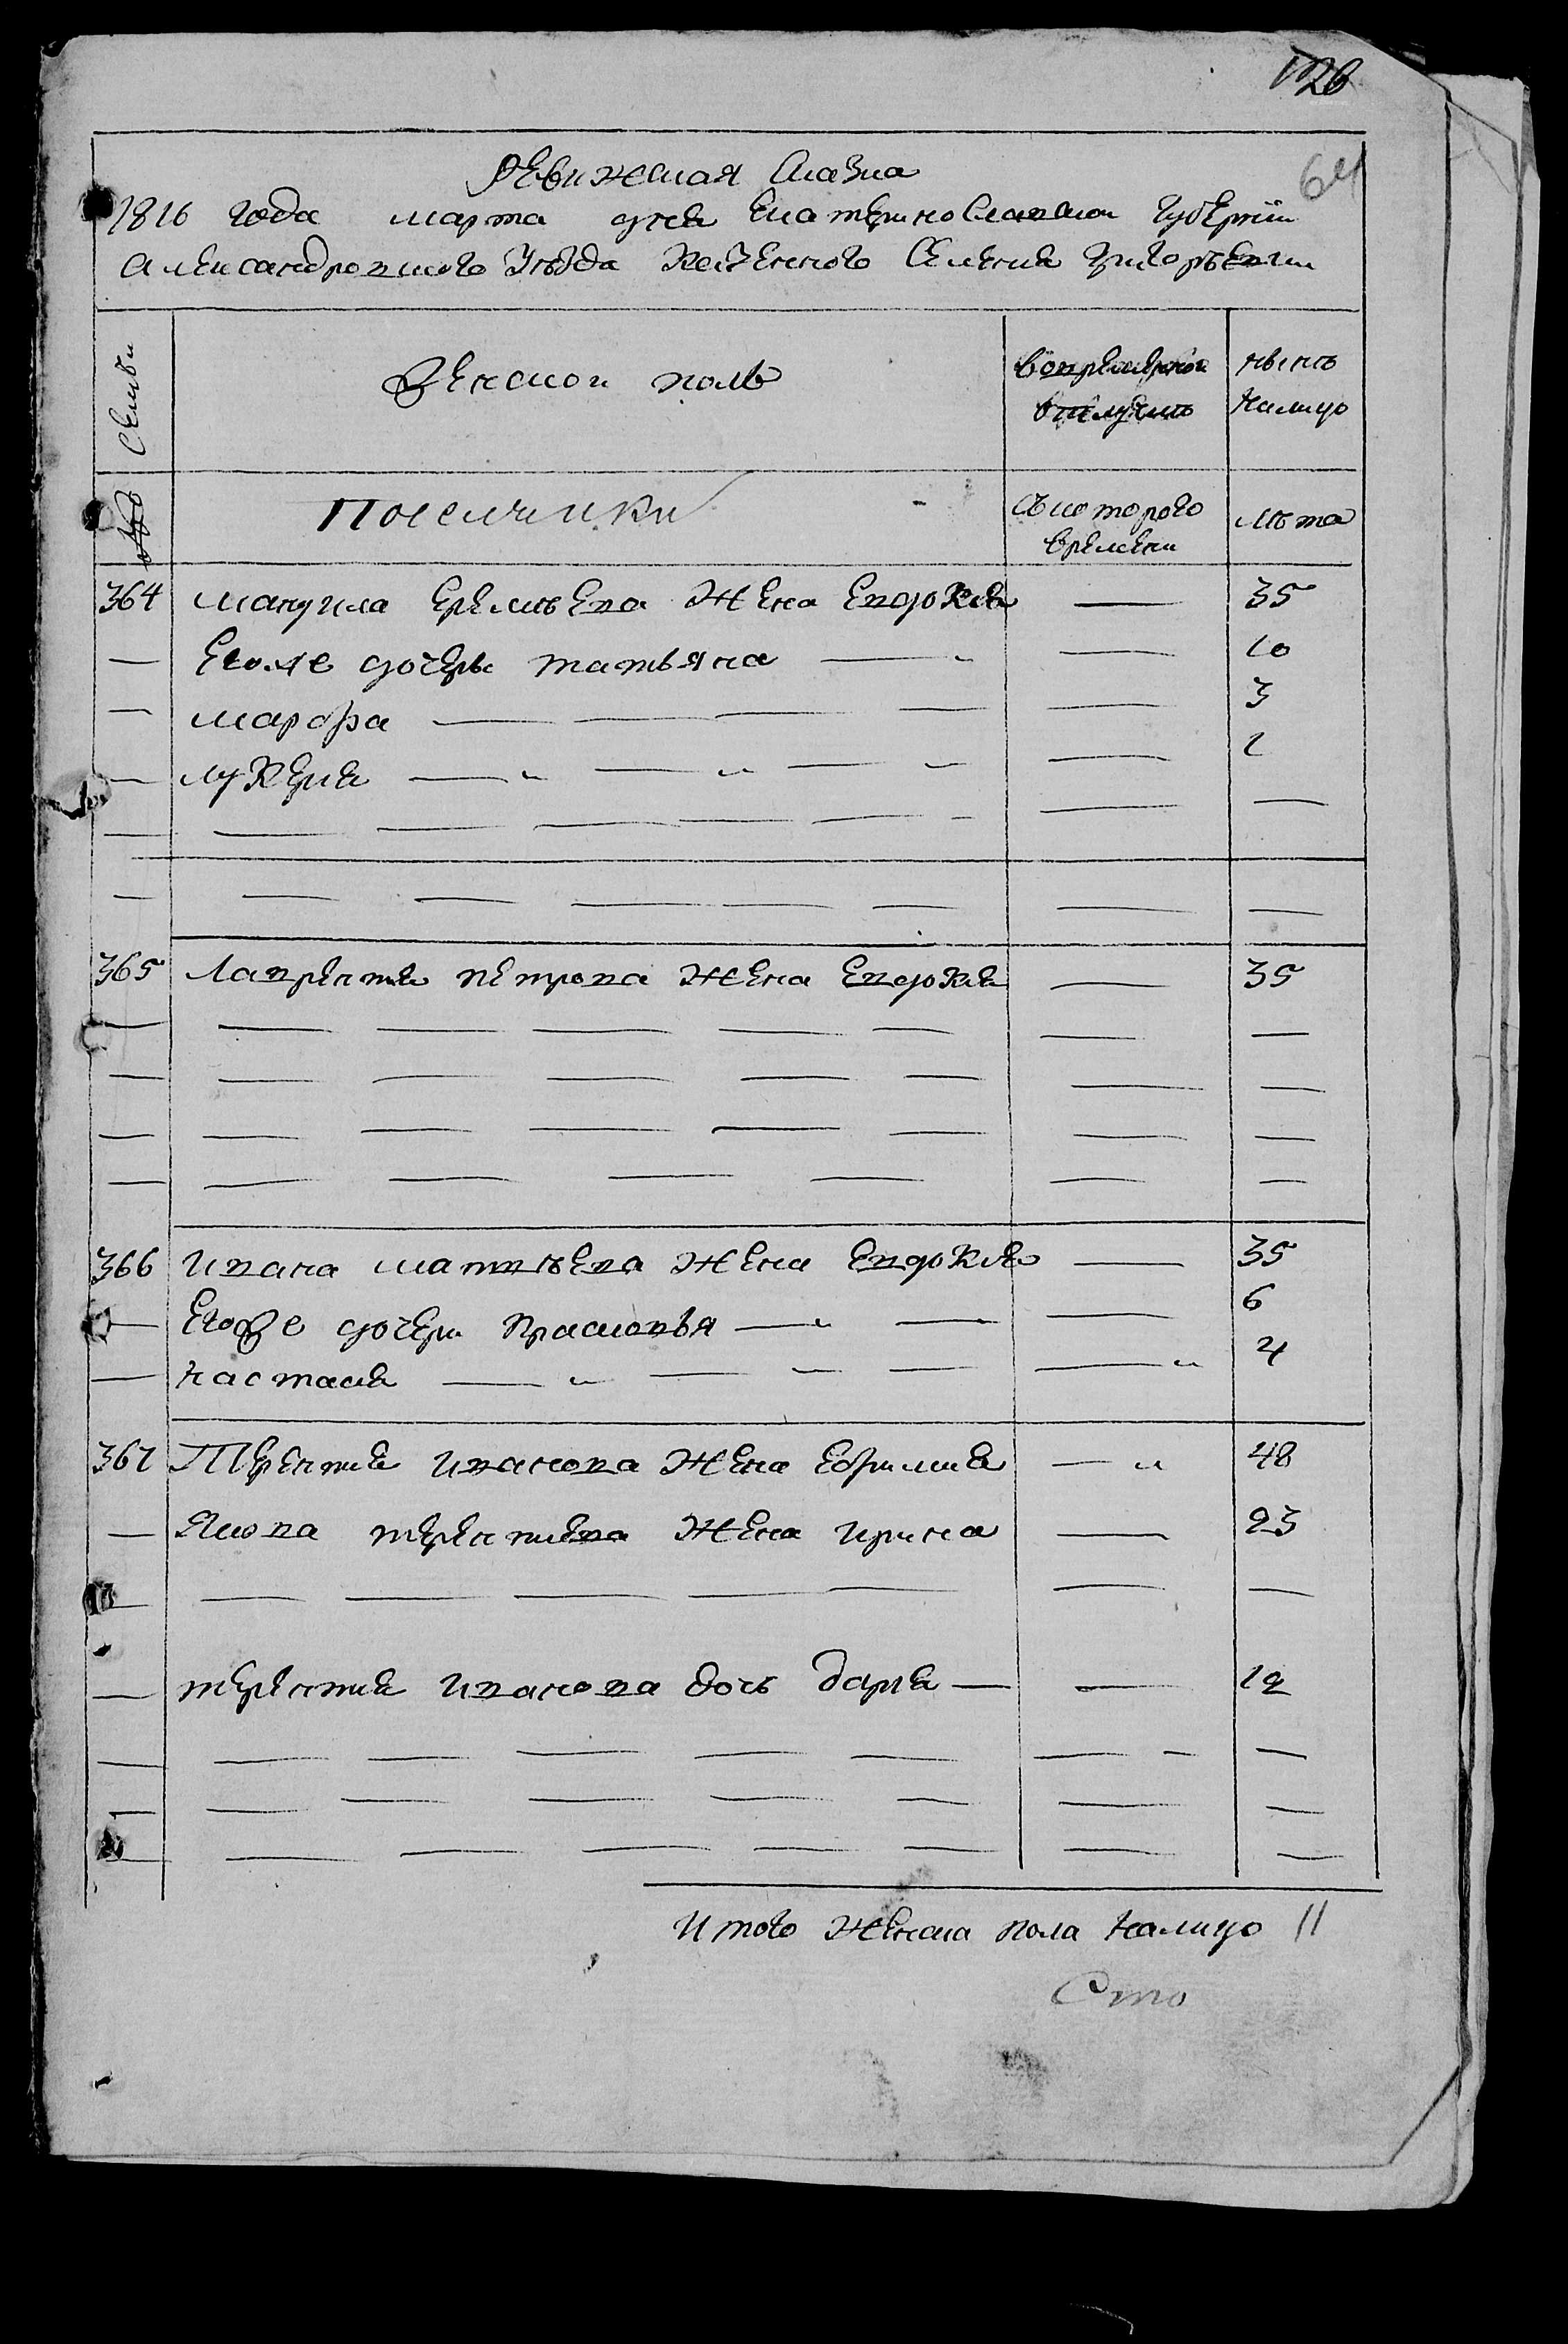 126
64
Ревижская Сказка
1816 года марта дня Екатеринославской Губернїи
Александровского Уѣзда Казенного Селения Григорьевки
Семьи
Женской полъ
Вопременной
Вотлучкѣ
нынѣ
Налицо
№
Поселеники
Съкоторого
Времени
лѣта
364 Мануила Еремѣева Жена Евдокия — 35
— Егоже дочери татьяна — — 10
— марфа — — 3
— лукерия — — 1
365 Лаврентия петрова Жена Евдокия — 35
366 Ивана матвѣева Жена Евдокия — 35
— Егоже дочери Прасковья — — 6
— настасия — — 4
367 Терентия Иванова Жена Ефимия — 48
— Якова терентиева Жена Ирина — 23
— терентия Иванова дочь дария — — 12
Итого Женска пола Налицо 11
Сто